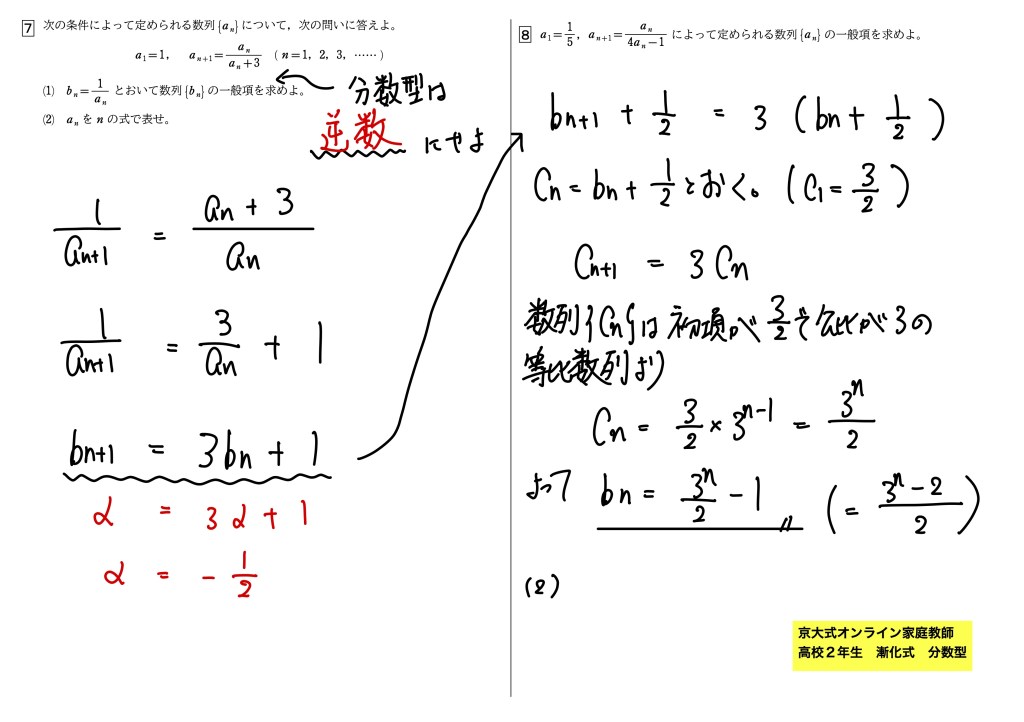 7 次の条件によって定められる数列{aₙ}について，次の問いに答えよ。
a₁=1, aₙ₊₁=aₙ/(aₙ+3) (n=1, 2, 3, ……)
(1) bₙ=1/aₙ とおいて数列{bₙ}の一般項を求めよ。
(2) aₙをnの式で表せ。
分数型は
逆数
にせよ
1/aₙ₊₁ = (aₙ+3)/aₙ
1/aₙ₊₁ = 3/aₙ + 1
bₙ₊₁ = 3bₙ + 1
α = 3α + 1
α = - 1/2
8 a₁=1/5, aₙ₊₁=aₙ/(4aₙ-1) によって定められる数列{aₙ}の一般項を求めよ。
bₙ₊₁ + 1/2 = 3 (bₙ + 1/2)
Cₙ = bₙ + 1/2 とおく。(C₁ = 3/2)
Cₙ₊₁ = 3Cₙ
数列{Cₙ}は初項が3/2で公比が3の
等比数列より
Cₙ = 3/2 × 3ⁿ⁻¹ = 3ⁿ/2
よって bₙ = 3ⁿ/2 - 1 (= (3ⁿ-2)/2)
(2)
京大式オンライン家庭教師
高校２年生　漸化式　分数型